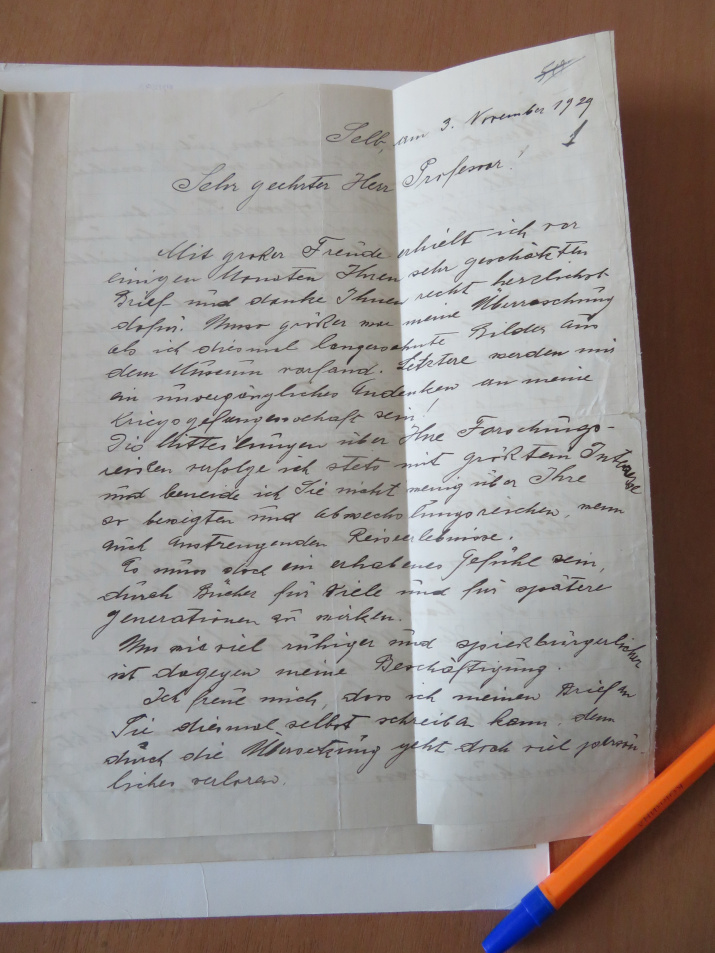 Selb, am 3. November 1929
1
Sehr geehrter Herr Professor!
Mit großer Freude erhielt ich vor
einigen Monaten Ihren sehr geschätzten
Brief und danke Ihnen recht herzlichst
dafür. Umso größer war meine Überraschung
als ich diesmal langersehnte Bilder aus
dem Museum vorfand. Letztere werden mir
ein unvergängliches Andenken an meine
Kriegsgefangenschaft sein!
Die Mitteilungen über Ihre Forschungs-
reisen verfolge ich stets mit größtem Interesse
und beneide ich Sie nicht wenig über Ihre
so bewegten und abwechslungsreichen, wenn
auch anstrengenden Reiseerlebnisse.
Es muss doch ein erhabenes Gefühl sein,
durch Bücher für Viele und für spätere
Generationen zu wirken.
Um wie viel ruhiger und spießbürgerlicher
ist dagegen meine Beschäftigung.
Ich freue mich, dass ich meinen Brief an
Sie diesmal selbst schreiben kann, denn
durch die Übersetzung geht doch viel persön-
liches verloren.